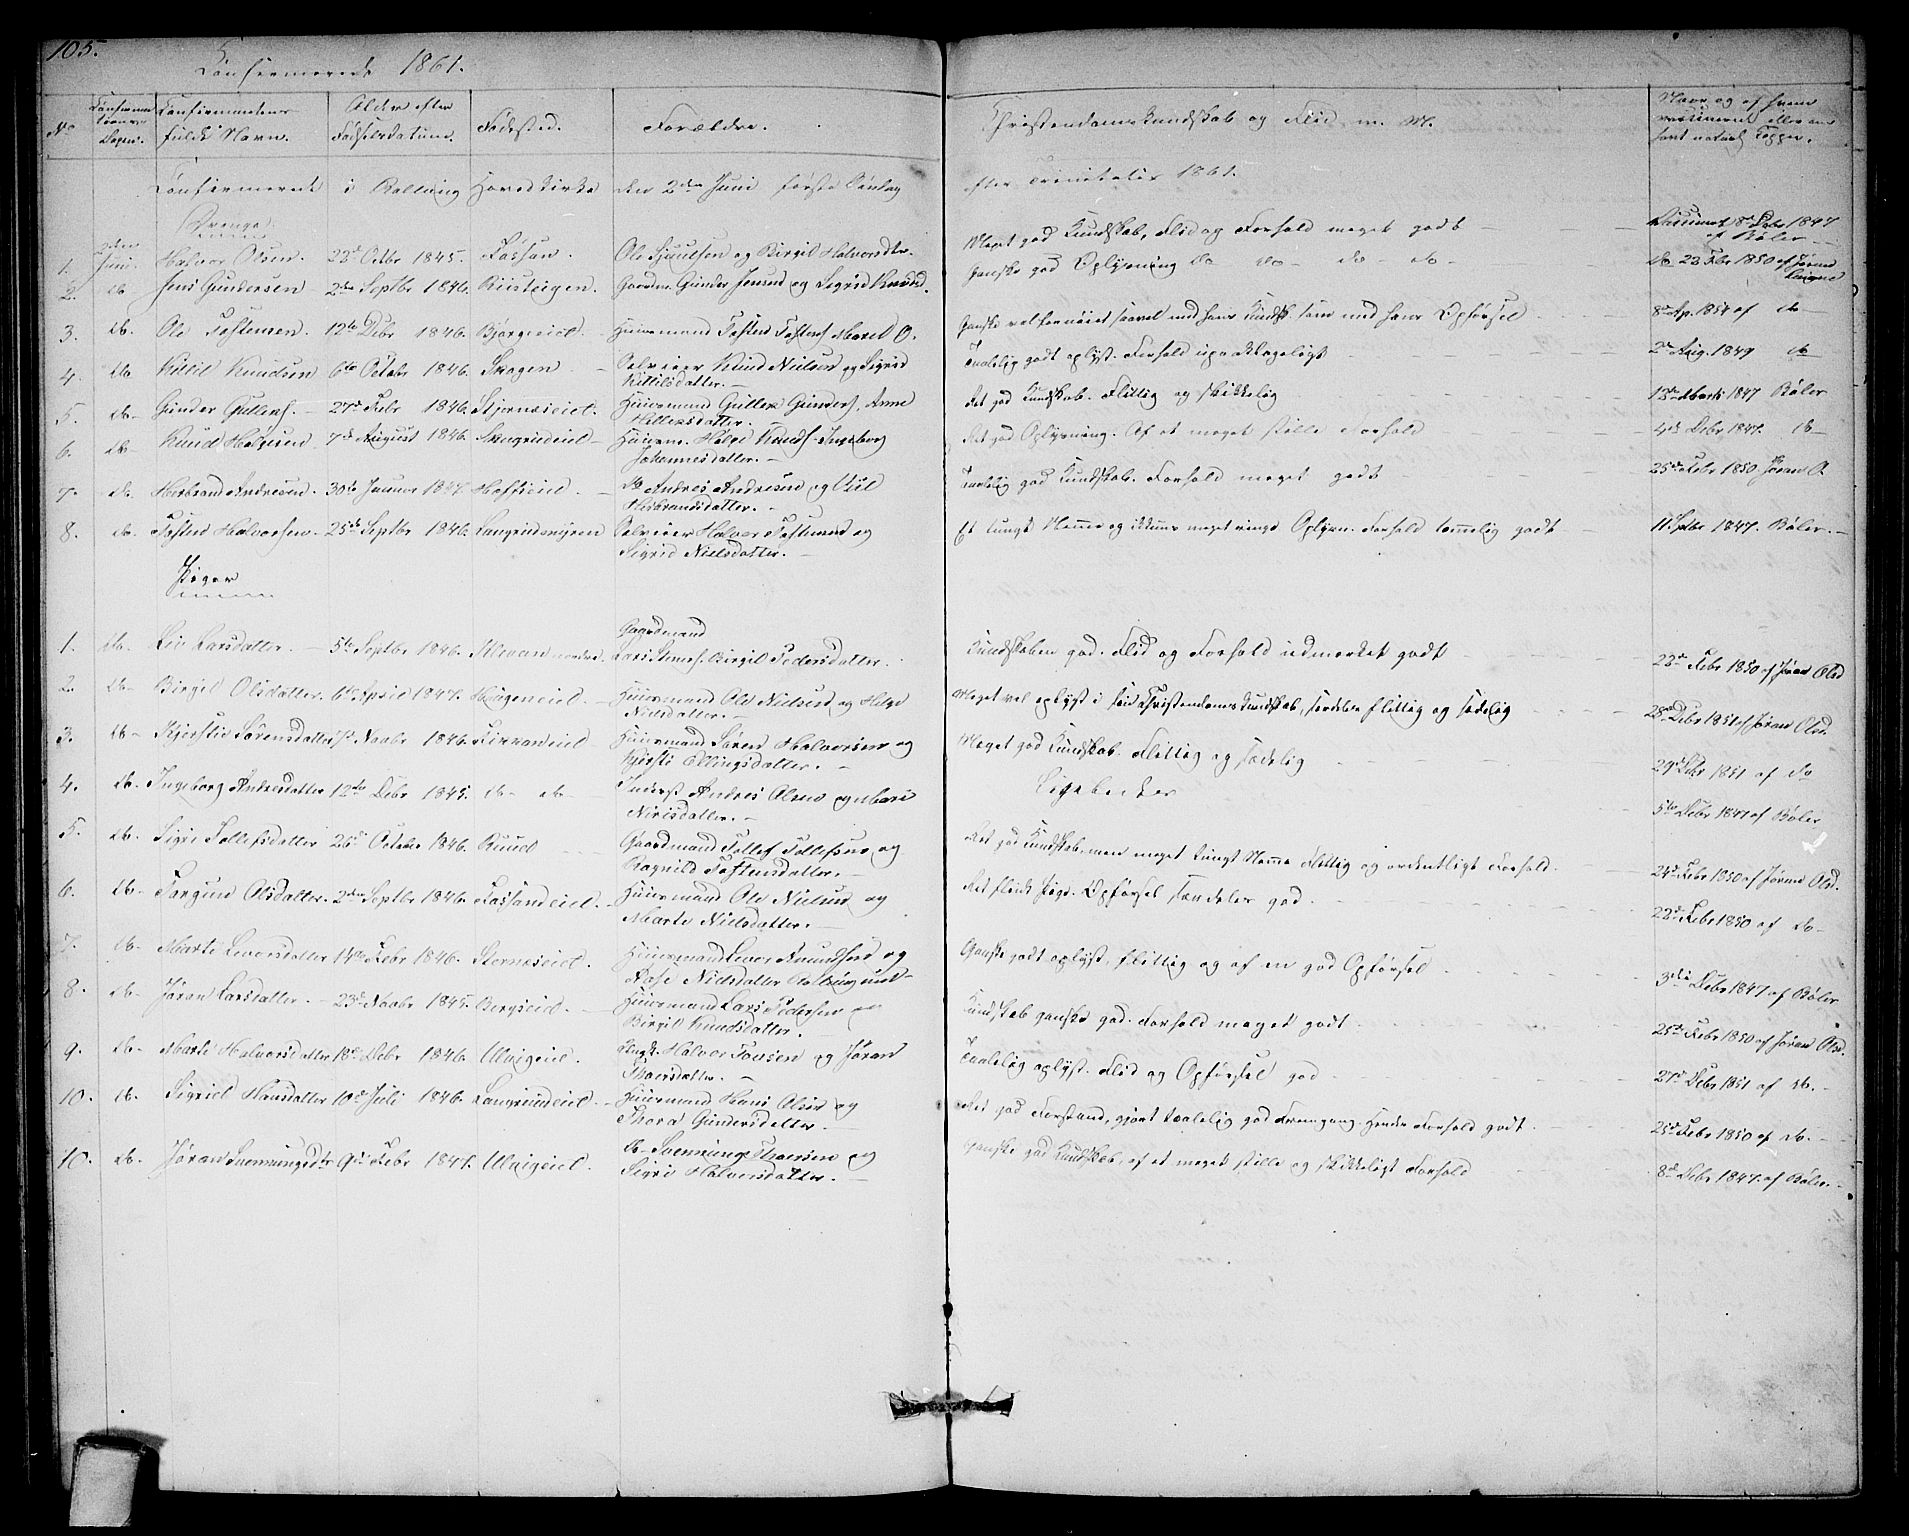 105.
Confirmerede 1861.
No
Confirmationsdagen.
Confirmandens fulde Navn.
Alder efter Fødselsdatum.
Fødested.
Forældre.
Christendomskundskab og Flid m. M.
Naar og af hvem vaccineret eller om havt naturl. Kopper.
Confirmerede i Rollaug Hovedkirke den 2den Juni første Søndag
efter Trinitatis 1861.
Drenge
1. 2den Juni. Halvor Olsen. 22d Octbr 1845. Fossan. Ole Sjuulsen og Birgit Halvorsdtr.
Meget god Kundskab, Flid og Forhold meget godt
Vaccineret 8de Debr 1847 af Bøler
2. do Jens Gundersen 2den Septbr 1846. Gaardm. Gunder Jensen og Sigrid Knudsd.
Ganske god Oplysning do do do do
do 23 Febr 1850 af Jøran
3. do. Ole Tostensen. 12te Debr 1846. Bjørgeeiet. Huusmand Tosten Tostens. Marit O.
Ganske vel fornøiet saavel med hans Kundsk. som med hans Opførsel
8de Ap. 1854 af do
4. do. Kittil Knudsen 6te Octobr 1846. Skogen Selveier Knud Nielsen og Sigrid
Kittilsdatter.
Taalelig godt oplyst. Forhold upaaklageligt
2de Aug. 1849 do
5. do Gunder Gullexs. 27de Febr 1846. Stjerneseiet. Huusmand Gullex Gunders, Anne
Hellexsdatter.
Ret god Kundskab. Flittig og skikkelig
13de Marts 1847 Bøler
6. do Knud Helgesen 7de August 1846. Skugrudeiet Huusm. Helge Knuds. Ingeborg
Johannesdatter.
Ret god Oplysning. Af et meget stille Forhold
4de Debr 1847. do
7. do. Herbrand Andresen. 30te Januar 1847. Hoffseiet. do Andres Andresen og
Herbrandsdatter.
Taalelig god Kundskab. Forhold meget godt
25de Febr 1850 Jøran O.
8. do Tosten Halvorsen 25de Septbr 1846 Langrudmyren Selveier Halvor Tostensen og
Sigrid Nielsdatter.
Et tungt Nemme og ikkuns meget ringe Oplysn. Forhold temmelig godt
11 Septbr 1847. Bøler.
Piger
1. do. Liv Larsdatter. 5te Septbr 1846. Kleven nordre. Gaardmand
Lars Stenersen Birgit Pedersdatter.
Kundskaben god. Flid og Forhold udmærket godt
22de Febr 1850 af Jøran Olsd
2. do Birgit Olsdatter 6te April 1847. Haugeneiet. Huusmand Ole Nielsen og Helge
Nielsdatter.
Meget vel oplyst i sin Christendoms Kundskab, særdeles flittig og sædelig
28de Debr 1851 af Jøran Olsd.
3. do Kjersti Sørensdatter Novbr 1846. Huusmand Søren Halvorsen og
Kjersti Ellingsdatter.
Meget god Kundskab. Flittig og sædelig
29de Debr 1851 af do
4. do. Ingeborg Andresdatter 12te Debr 1845. do do Inderst Andres Olsen og Mari
Nirisdatter.
Ligeledes
5te Debr 1847 af Bøler
5. do. Sigri Tollefsdatter 26de October 1846. Ruud Gaardmand Tollef Tollefsen og
Ragnild Tostensdatter.
Ret god Kundskab, men meget tungt Nemme Flittig og ordentligt Forhold.
24de Febr 1850 af Jøran Olsd.
6. do Torgun Olsdatter. 2den Septbr 1846. Fossandeiet. Huusmand Ole Nielsen og
Marte Nielsdatter.
Ret flink Pige. Opførsel særdeles god.
22de Febr 1850 af do
7. do Marte Leversdatter 14de Febr 1846. Sterneseiet. Huusmand Lever Amundsen og
Aase Nielsdatter
Ganske godt oplyst, flittig og af en god Opførsel
3die Debr 1847 af Bøler
8. do. Jøran Larsdatter. 23de Novbr 1845. Bergseiet. Huusmand Lars Pedersen og
Birgit Knudsdatter.
Kundskab ganske god. Forhold meget godt
25de Febr 1850 af Jøran Olsd.
9. do. Marte Halvorsdatter 18de Debr 1846. Ulvigeiet. Halvor Tovsen og Jøran
Thorsdatter.
Taalelig oplyst. Flid og Opførsel god
27de Debr 1851 af do.
10. do. Sigrid Hansdatter 10de Juli 1846. Langrudeiet. Huusmand Hans Olsen og
Thora Gundersdatter.
Ret god Forstand, gjort taalelig god Fremgang. Hendes Forhold godt.
25de Febr 1850 af do.
10. do. Jøran Svenningsdtr 9de Febr 1847. Ulvigeiet. do Svenning Thorsen og
Sigri Halvorsdatter.
Ganske god Kundskab, af et meget stille og skikkeligt Forhold
8de Debr 1847. af Bøler.